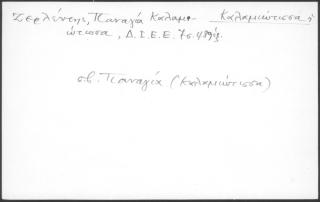 Ζερλέντης, Παναγία Καλαμι- Καλαμιώτισσα ἡ
ώτισσα, Δ.Ι.Ε.Ε. 7σ. 489 ἑξ.
σ.β. Παναγία (Καλαμιώτισσα)